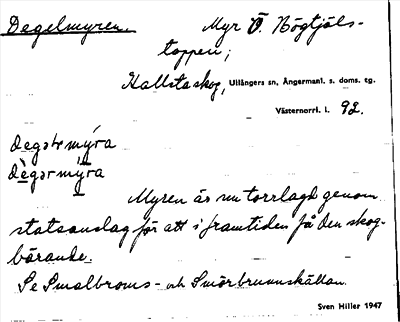 Degelmyren. Myr Ö. Högtjäls-
toppen;
Kallstaskog, Ullångers sn, Ångermanl. s. doms. tg.
Västernorrl. l. 92.
degər mýra
dègərmỳra
Myren är nu torrlagd genom
statsanslag för att i framtiden få den skog-
bärande.
Se Smalbroms- och Smörbrunnskällan.
Sven Hiller 1947